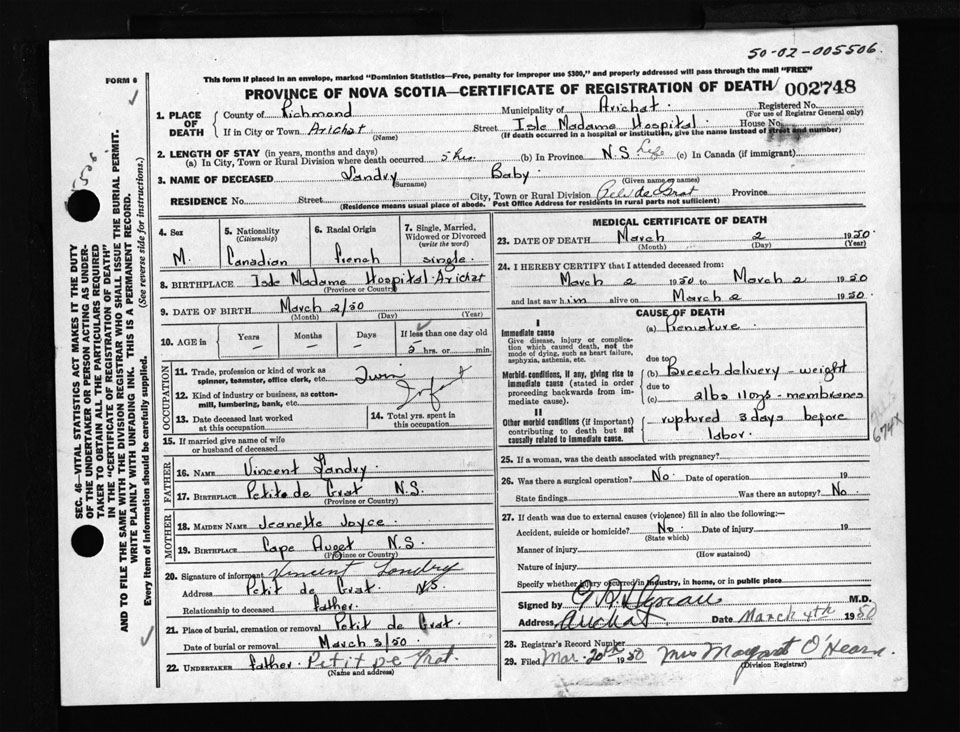 50-02-005506.
FORM 6
This form if placed in an envelope, marked "Dominion Statistics—Free, penalty for improper use $300," and properly addressed will pass through the mail "FREE"
PROVINCE OF NOVA SCOTIA—CERTIFICATE OF REGISTRATION OF DEATH 002748
1. PLACE OF DEATH
County of Richmond Municipality of Arichat. Registered No.
(For use of Registrar General only)
If in City or Town Arichat Street Isle Madame Hospital. House No.
(Name) (If death occurred in a hospital or institution, give the name instead of street and number)
2. LENGTH OF STAY (in years, months and days)
(a) In City, Town or Rural Division where death occurred 5 hrs. (b) In Province N.S Life (c) In Canada (if immigrant)
3. NAME OF DECEASED Landry Baby
(Surname) (Given name or names)
RESIDENCE No. Street City, Town or Rural Division Petit de Grat Province
(Residence means usual place of abode. Post Office Address for residents in rural parts not sufficient)
4. Sex
M.
5. Nationality
(Citizenship)
Canadian
6. Racial Origin
French
7. Single, Married, Widowed or Divorced
(write the word)
Single.
8. BIRTHPLACE Isle Madame Hospital Arichat
(Province or Country)
9. DATE OF BIRTH March 2/50
(Month) (Day) (Year)
10. AGE in Years Months Days If less than one day old
– – 5 hrs. or min.
OCCUPATION
11. Trade, profession or kind of work as spinner, teamster, office clerk, etc. Twin
12. Kind of industry or business, as cotton-mill, lumbering, bank, etc. Infant
13. Date deceased last worked at this occupation
14. Total yrs. spent in this occupation
15. If married give name of wife or husband of deceased
FATHER
16. NAME Vincent Landry.
17. BIRTHPLACE Petit de Grat N.S.
(Province or Country)
MOTHER
18. MAIDEN NAME Jeanette Joyce.
19. BIRTHPLACE Cape Auget N.S.
(Province or Country)
20. Signature of informant Vincent Landry
Address Petit de Grat. N.S.
Relationship to deceased father.
21. Place of burial, cremation or removal Petit de Grat.
Date of burial or removal March 3/50
22. UNDERTAKER father. Petit de Grat.
(Name and address)
MEDICAL CERTIFICATE OF DEATH
23. DATE OF DEATH March 2 1950
(Month) (Day) (Year)
24. I HEREBY CERTIFY that I attended deceased from:
March 2 1950 to March 2 1950
and last saw him alive on March 2 1950.
CAUSE OF DEATH
I
Immediate cause
Give disease, injury or complication which caused death, not the mode of dying, such as heart failure, asphyxia, asthenia, etc.
(a) Premature.
due to
Morbid conditions, if any, giving rise to immediate cause (stated in order proceeding backwards from immediate cause).
(b) Breech delivery – weight
due to
(c) 2lbs 11ozs – membranes
II
Other morbid conditions (if important) contributing to death but not causally related to immediate cause.
ruptured 3 days before
labor.
674X
25. If a woman, was the death associated with pregnancy?
26. Was there a surgical operation? No. Date of operation 19
State findings Was there an autopsy? No.
27. If death was due to external causes (violence) fill in also the following:—
Accident, suicide or homicide? No. Date of injury 19
(State which)
Manner of injury
(How sustained)
Nature of injury
Specify whether injury occurred in industry, in home, or in public place
Signed by M.D.
Address Arichat Date March 4th 1950
28. Registrar's Record Number
29. Filed Mar. 20th 1950 Mrs Margaret O'Hearn.
(Division Registrar)
SEC. 46—VITAL STATISTICS ACT MAKES IT THE DUTY
OF THE UNDERTAKER OR PERSON ACTING AS UNDER-
TAKER TO OBTAIN ALL THE PARTICULARS REQUIRED
IN THE "CERTIFICATE OF REGISTRATION OF DEATH"
AND TO FILE THE SAME WITH THE DIVISION REGISTRAR WHO SHALL ISSUE THE BURIAL PERMIT.
WRITE PLAINLY WITH UNFADING INK. THIS IS A PERMANENT RECORD.
Every item of information should be carefully supplied. (See reverse side for instructions.)